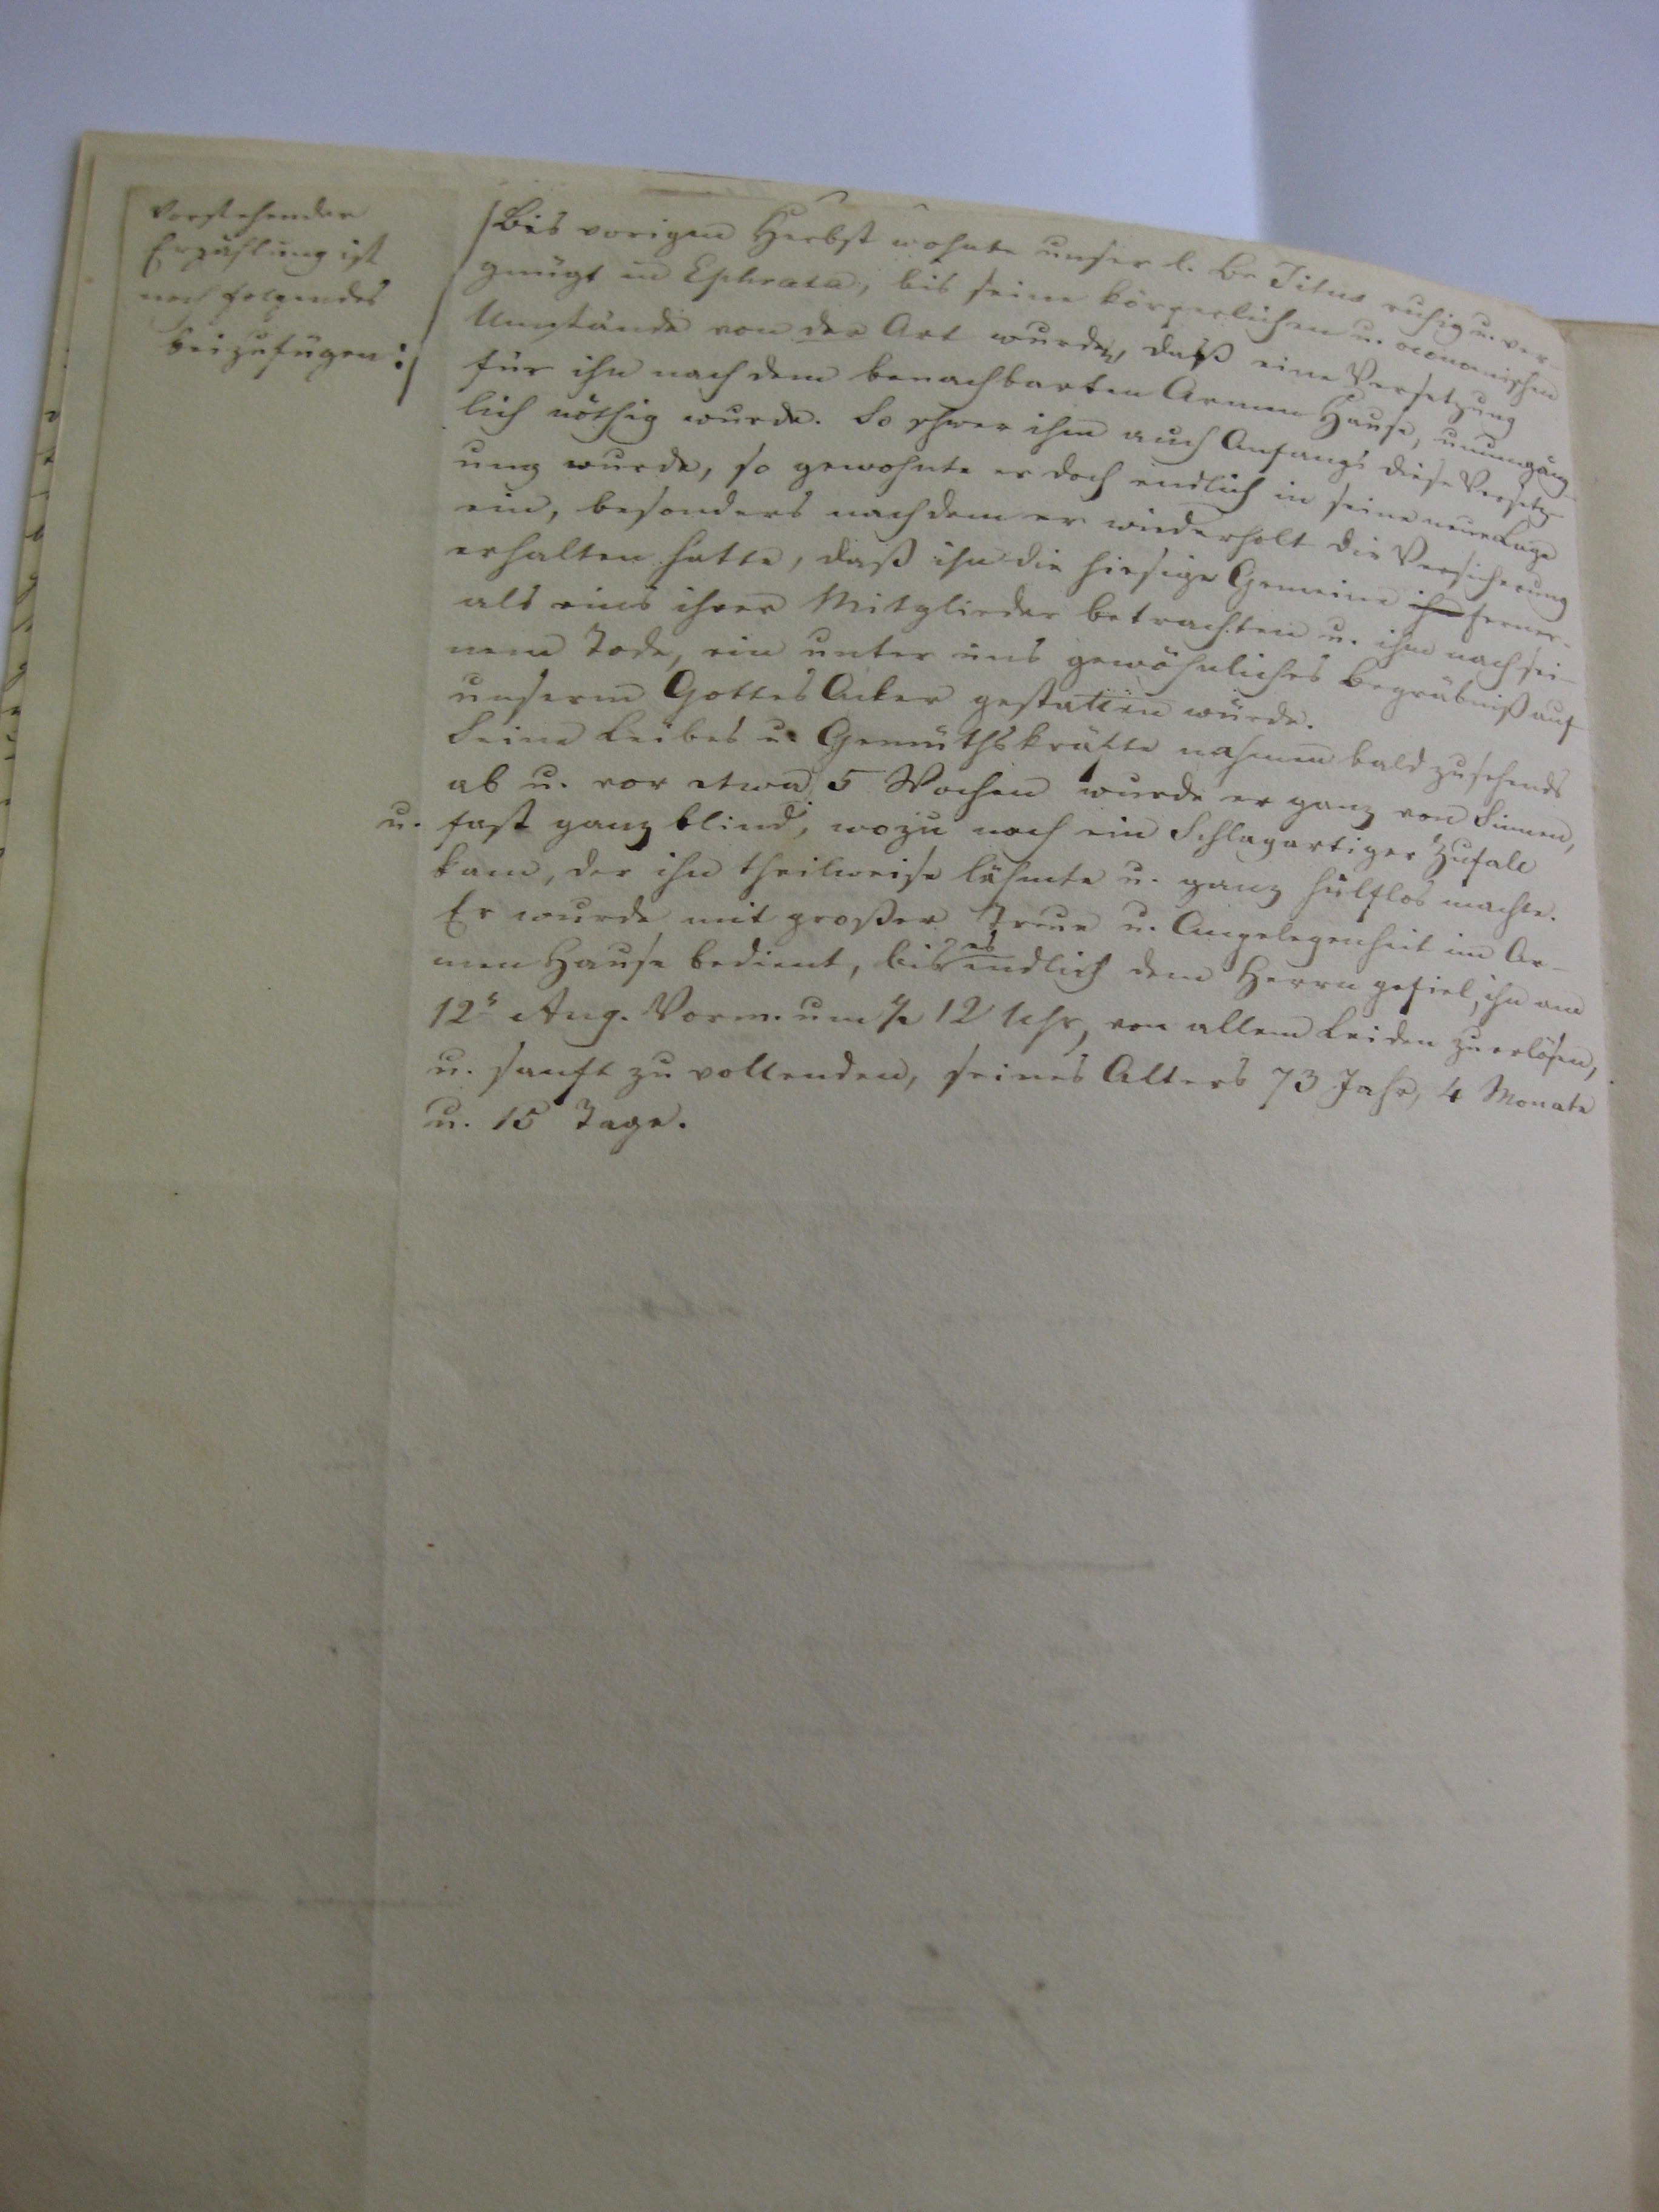 Vorstehender
Erzählung ist
noch folgendes
beizufügen:/
/Bis vorigen Herbst wohnte unser l. Br Titus ruhig u. ver-
gnügt in Ephrata, bis seine körperlichen u. oeconomischen
Umstände von der Art wurden, daß eine Versetzung
für ihn nach dem benachbarten Armen Hause, unumgäng-
lich nöthig wurde. So schwer ihm auch Anfangs diese Versetz-
ung wurde, so gewohnte er doch endlich in seine neue Lage
ein, besonders nachdem er wiederholt die Versicherung
erhalten hatte, daß ihn die hiesige Gemeine ihn ferner-
als eins ihrer Mitglieder betrachten u. ihm nach sei-
nem Tode, ein unter uns gewöhnliches Begräbniß auf
unserm Gottes Acker gestatten würde.
Seine Leibes u. Gemüthskräfte nahmen bald zusehends
ab u. vor etwa 5 Wochen wurde er ganz von Sinnen,
u. fast ganz blind, wozu noch ein Schlagartiger Zufall
kam, der ihn theilweise lähmte u. ganz hülflos machte.
Er wurde mit großer Treue u. Angelegenheit im Ar-
men Hause bedient, bis es endlich dem Herrn gefiel, ihn am
12n Aug. Vorm. um ½ 12 Uhr, von allem Leiden zu erlösen,
u. sanft zu vollenden, seines Alters 73 Jahr, 4 Monate
u. 15 Tage.